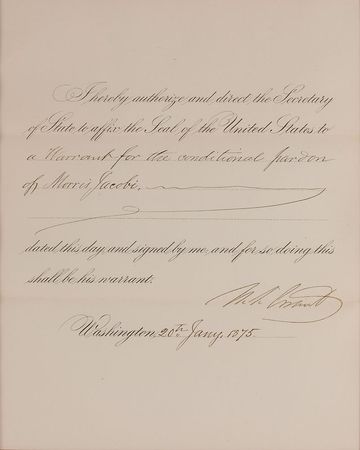 I hereby authorize and direct the Secretary
of State to affix the Seal of the United States to
a Warrant for the conditional pardon
of Morris Jacobi,
dated this day, and signed by me, and for so doing this
shall be his warrant.
U. S. Grant
Washington, 20th Jany. 1875.